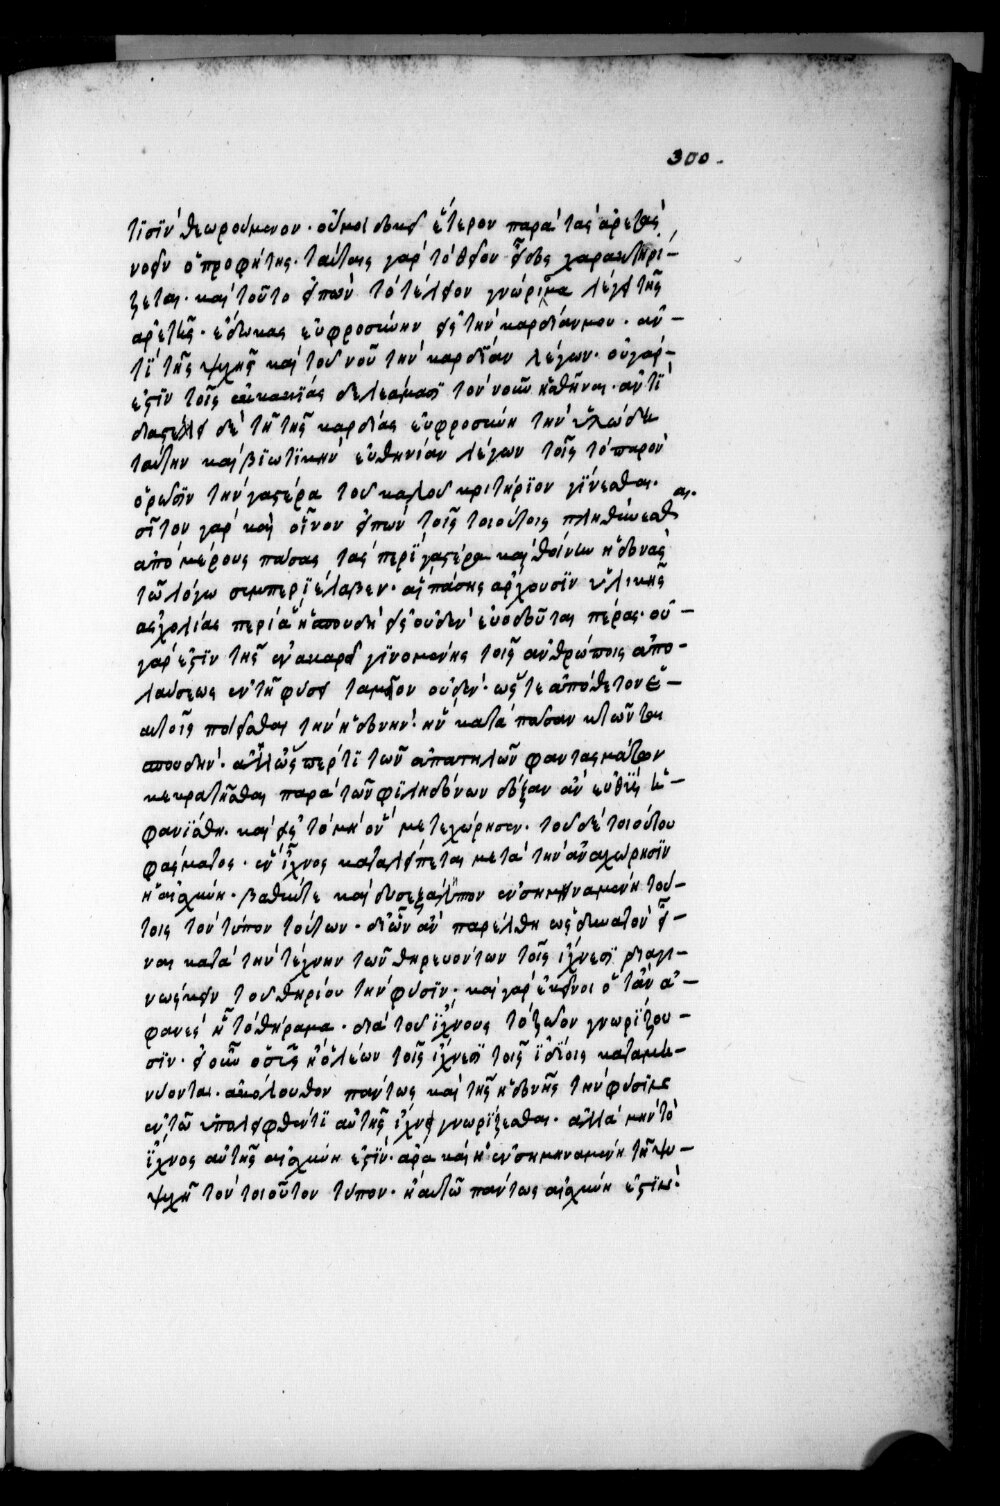 300.
τισὶν θεωρούμενον. οὔ μοι δοκεῖ ἕτερον παρὰ τὰς ἀρετὰς
νοεῖν ὁ προφήτης. ταύταις γὰρ τὸ θεῖον εἶδος χαρακτηρί-
ζεται. καὶ τοῦτο εἰπὼν τὸ τέλειον γνώρισμα λέγει τῆς
ἀρετῆς. ἔδωκας εὐφροσύνην εἰς τὴν καρδίαν μου. ἀν-
τὶ τῆς ψυχῆς καὶ τοῦ νοῦ τὴν καρδίαν λέγων. οὐ γάρ-
ἐστιν τοῖς ἐκ κακίας δελεάμασι τὸν νοῦν ἡσθῆναι. ἀντι
διαστέλλει δὲ τῇ τῆς καρδίας εὐφροσύνῃ τὴν ὑλώδη
ταύτην καὶ βιωτικὴν εὐθηνίαν λέγων τοῖς τὸ παρὸν
ὁρῶσιν τὴν γαστέρα τοῦ καλοῦ κριτήριον γίνεσθαι.
σῖτον γὰρ καὶ οἶνον εἰπὼν τοῖς τοιούτοις πληθύνεσθαι.
ἀπὸ μέρους πάσας τὰς περὶ γαστέρα καὶ θοίνην ἡδονὰς
τῷ λόγῳ συμπεριέλαβεν. αἱ πάσης ἄρχουσιν ὑλικῆς
ἀσχολίας περὶ ἃ ἡ σπουδὴ εἰς οὐδὲν εὐοδοῦται πέρας. οὐ-
γάρ ἐστιν τῆς ἐν ἀκαρεῖ γινομένης τοῖς ἀνθρώποις ἀπο-
λαύσεως ἐν τῇ φύσει ταμεῖον οὐδέν. ὥστε ἀπόθετον ἑ-
αυτοῖς ποιεῖσθαι τὴν ἡδονήν. ἣν κατὰ πᾶσαν κτῶνται
σπουδήν. ἀλλ' ὥσπερ τι τῶν ἀπατηλῶν φαντασμάτων
κεκρατῆσθαι παρὰ τῶν φιληδόνων δόξαν ἂν εὐθὺς ἠ-
φανίσθη. καὶ εἰς τὸ μὴ ὂν μετεχώρησεν. τοῦ δὲ τοιούτου
φάσματος. ἓν ἴχνος καταλείπεται μετὰ τὴν ἀναχώρησιν
ἡ αἰσχύνη. βαθύτε καὶ δυσεξάλειπτον ἐνσημηναμένη τού-
τοις τὸν τύπον τούτων. δι ὧν ἂν παρέλθῃ ὡς δυνατὸν εἶ-
ναι κατὰ τὴν τέχνην τῶν θηρευόντων τοῖς ἴχνεσι διαγι-
νώσκειν τοῦ θηρίου τὴν φύσιν. καὶ γὰρ ἐκεῖνοι ὅταν ἀ-
φανὲς ᾖ τὸ θήραμα. διὰ τοῦ ἴχνους τὸ ζῶον γνωρίζου-
σιν. εἰ οὖν ὁ σῦς ἢ ὁ λέων τοῖς ἴχνεσι τοῖς ἰδίοις καταμη-
νύονται. ἀκόλουθον πάντως καὶ τῆς ἡδονῆς τὴν φύσιν
ἐν τῷ ὑπολειφθέντι αὐτῆς ἴχνει γνωρίζεσθαι. ἀλλὰ μὴν τὸ
ἴχνος αὐτῆς αἰσχύνη ἐστίν. ἄρα καὶ ἡ ἐνσημηναμένη τῇ ψυ-
ψυχῇ τὸν τοιοῦτον τύπον. ἢ αὐτὸ πάντως αἰσχύνη ἐστίν.